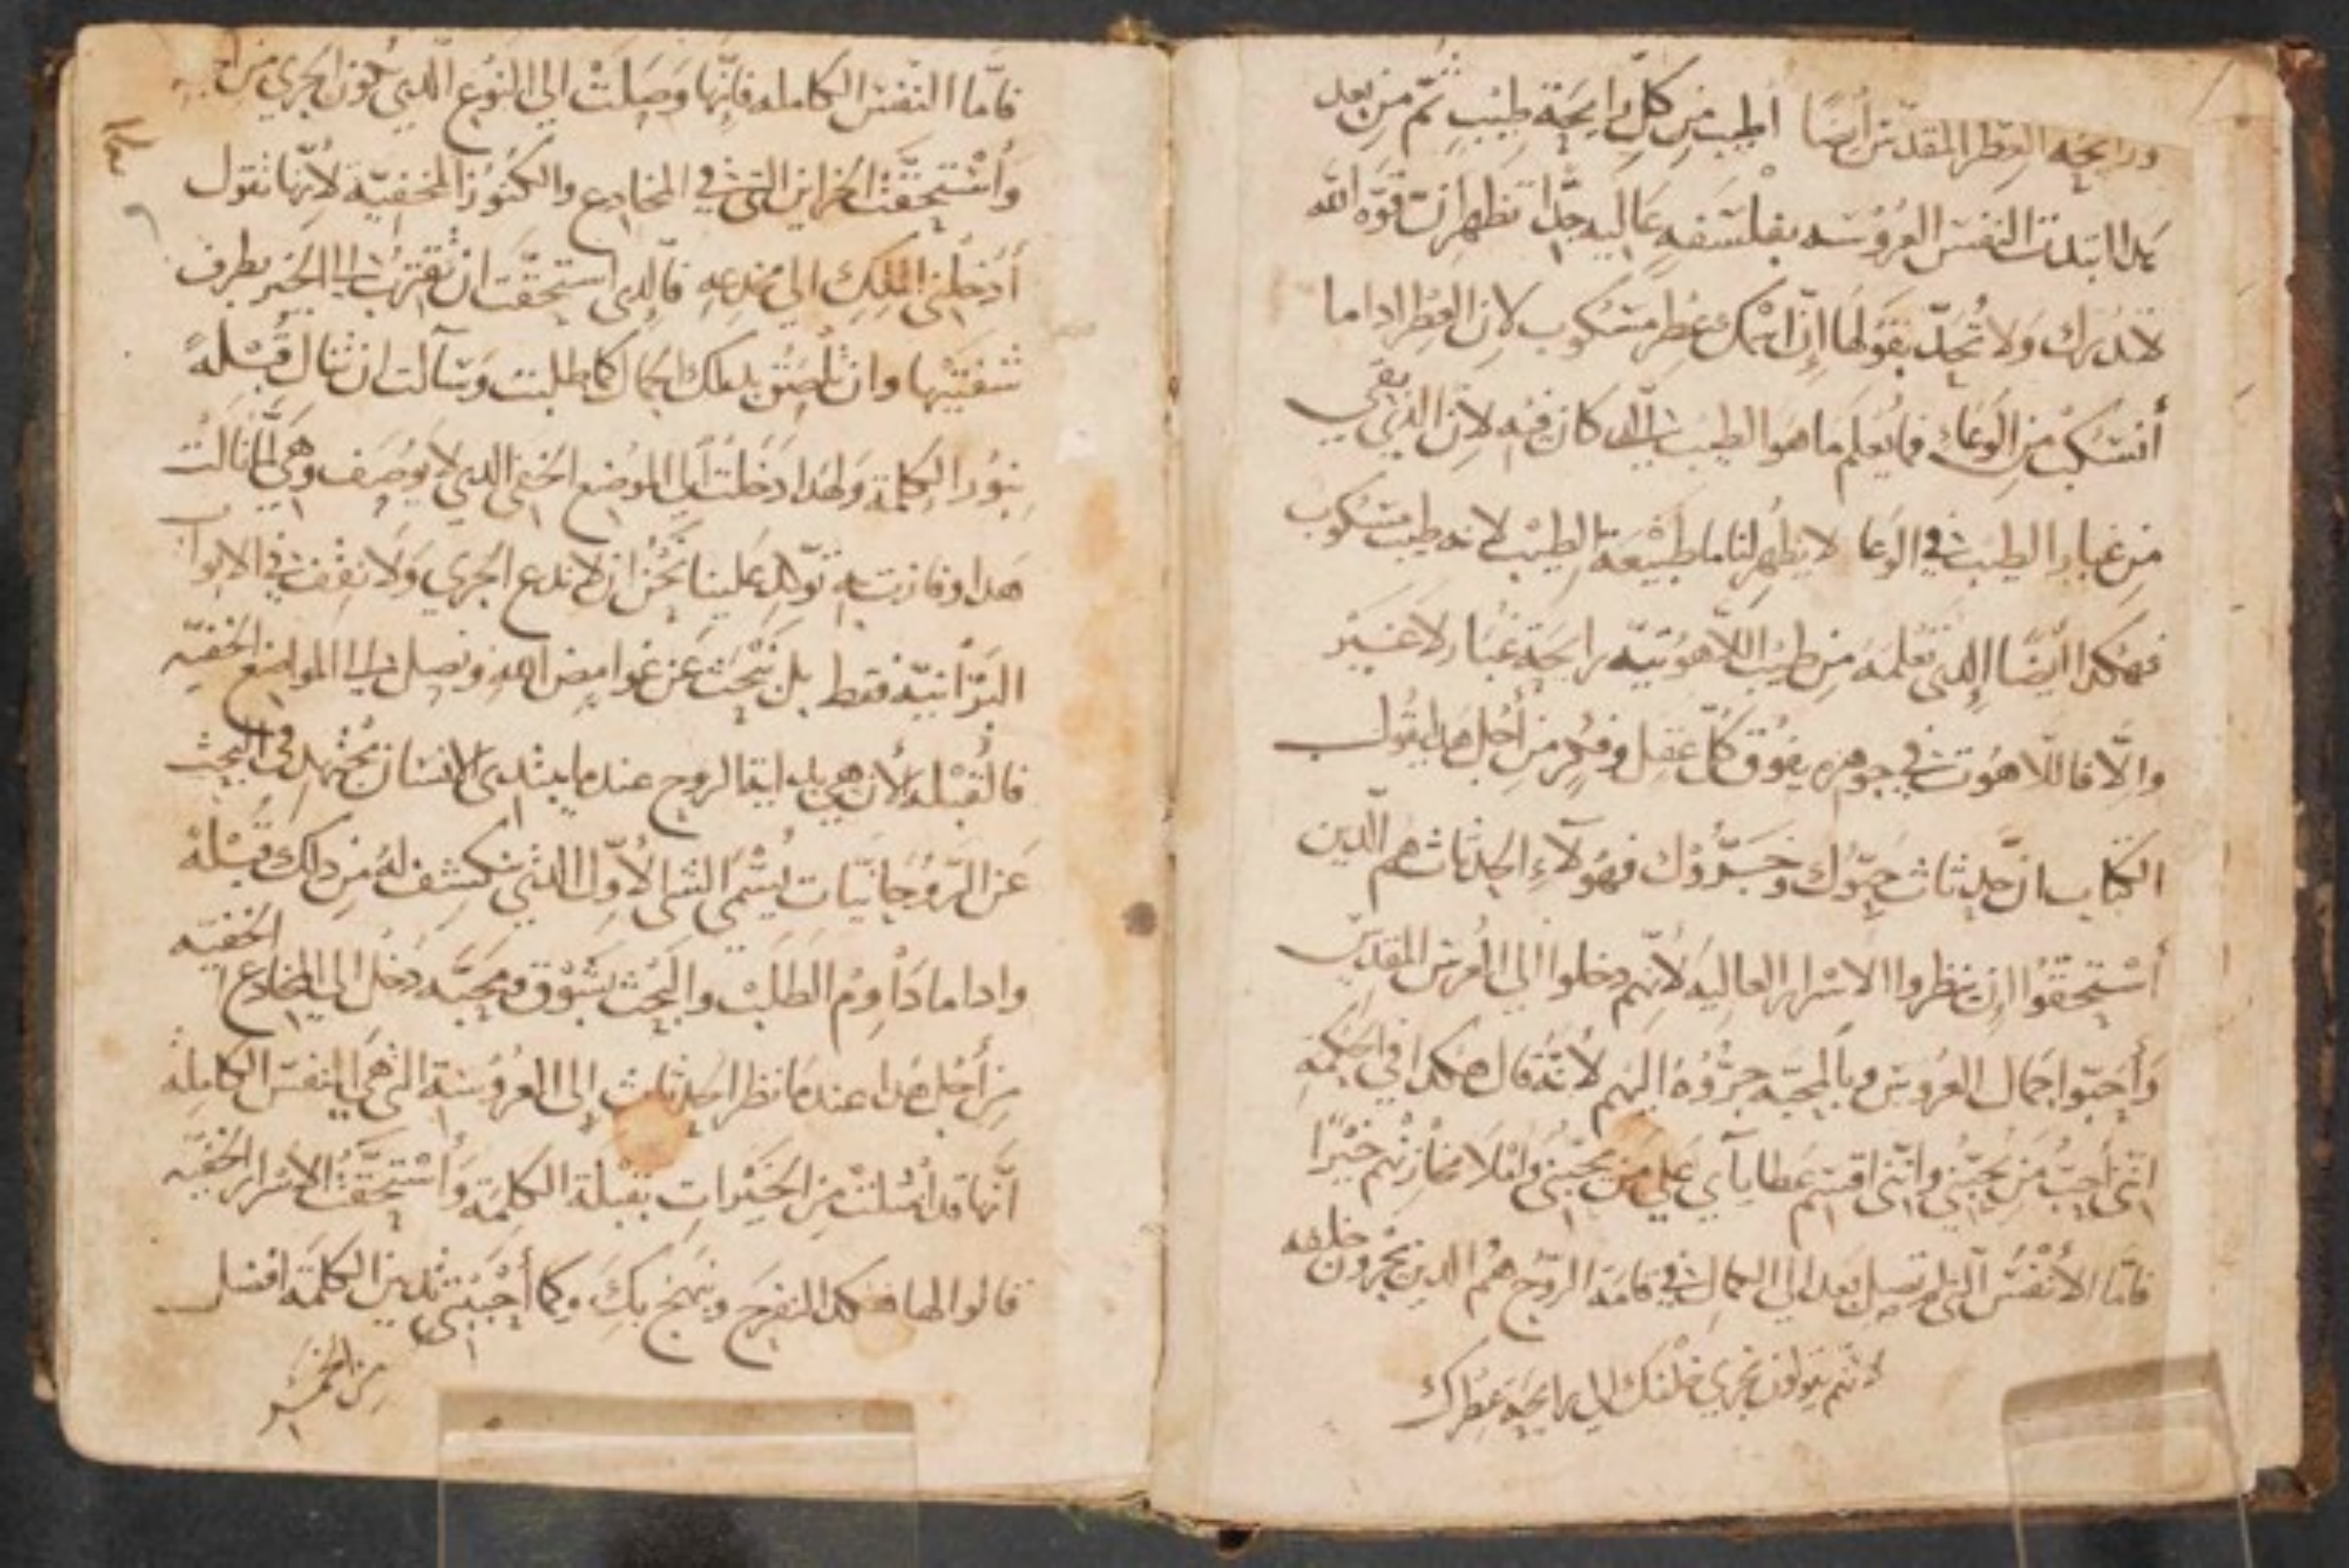 ورايحه العطر المقدس أيضا أطيب من كلّ رايحة طيبٍ ثمّ من بعد
هدا ابتدت النفس العروسه بفلسفه عاليه جدّا تظهر ان قوّه الله
لا تدرك ولا تُحدّ بقولها إنّ اسمك عطر مسكوب لان العطر ادا ما
أنسكب من الوعاء فما يعلم ما هو الطيب الدي كان فيه لان الدي بقي
من غبار الطيب في الوعا لا يظهر لنا ما طبيعة الطيب لانه طيب مسكوب
فهكدا أيضًا الدي نعلمه من طيب اللاهوتيّه رايحة غبار لا غير
والّا فاللاهوت في جوهره يفوق كلّ عقل وفكر من أجل هدا يقول
الكتاب انّ حدثات حبّوك وجرّوك فهولاء الحدثات هم الّدين
أستحقوا ان ينظروا الاسرار العاليه لانهم دخلوا الي العرس المقدس
وأحبّوا جمال العروس وبالمحبّه جرّوه اليهم لانّه قال هكدا في الحكمه
انني أحبّ من يحبّني وانّني اقسم عطاياي علي من يحبّني وأملا مخازنهم خيرًا
فامّا الأنفس التي لم تصل بعد الي الكمال في قامة الروح هم الدين يجرون خلفه
لانهم يقولون نجري خلفك الي رايحة عطرك
فامّا النفس الكامله فانّها وصلت الي النوع الّدي تكون الجري من
وأستحقّت الخزاين التي في المخادع والكنوز المخفيّة لأنّها تقول
أدخلني الملك الي مخدعه فالدي استحقّت ان تقترب الي الخير بطرف
شفتيها وان تلصق بدلك الجمال كما طلبت وسآلت ان تنال قبلةً
بنور الكلمة ولهدا دخلت الي الموضع الخفي الدي لا يوصف وهي لمّا نالت
هدا وفازت به تولد علينا نحن ان لا ندع الجري ولا نقف في الابواب
البرّانيّه فقط بل نبحث عن غوامض الله ونصل الي المواضع الخفيّه
فالقبلة الأن هي بدايةا لروح عندما يبتدي الانسان يجتهد في البحث
عن الرّوحانيّات يسمّي الشي الأوّل الدي ينكشف له من دلك قبلة
وادا ما دآوم الطلب والبحث بشوق ومحبّه دخل الي المخادع الخفيّه
من أجل هدا عندما نظر الحدثات إلي العروسة التي هي النفس الكاملة
انّها قد أمتلت من الخيرات بقبلة الكلمة وأستحقّت الاسرار الخفيّه
قالوا لها هكدا لنفرح ونبهج بك وكما أحببتي ثديين الكلمة افضل
من الخمر